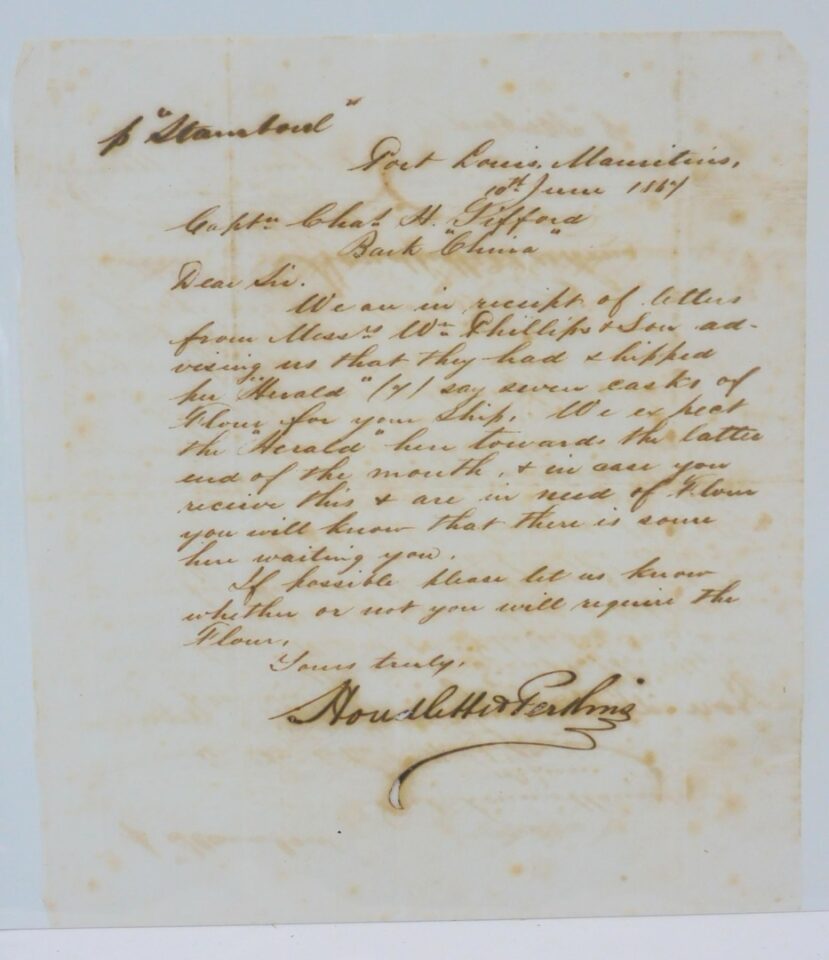 p "Stamboul"
Port Louis, Mauritius,
10th June 1867
Captn Chas H. Gifford
Bark "China"
Dear Sir.
We are in receipt of letters
from Messrs Wm Phillips & Son ad-
vising us that they had shipped
per "Herald" (7) say seven casks of
Flour for your Ship. We expect
the "Herald" here towards the latter
end of the month, & in case you
receive this & are in need of Flour
you will know that there is some
here waiting you.
If possible please let us know
whether or not you will require the
Flour.
Yours truly,
Houdlette & Perkins